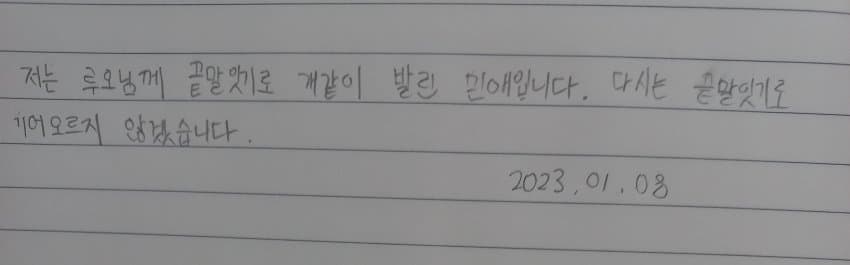 저는 루오님께 끝말잇기로 개같이 발린 민애입니다. 다시는 끝말잇기로
기어오르지 않겠습니다.
2023.01.08